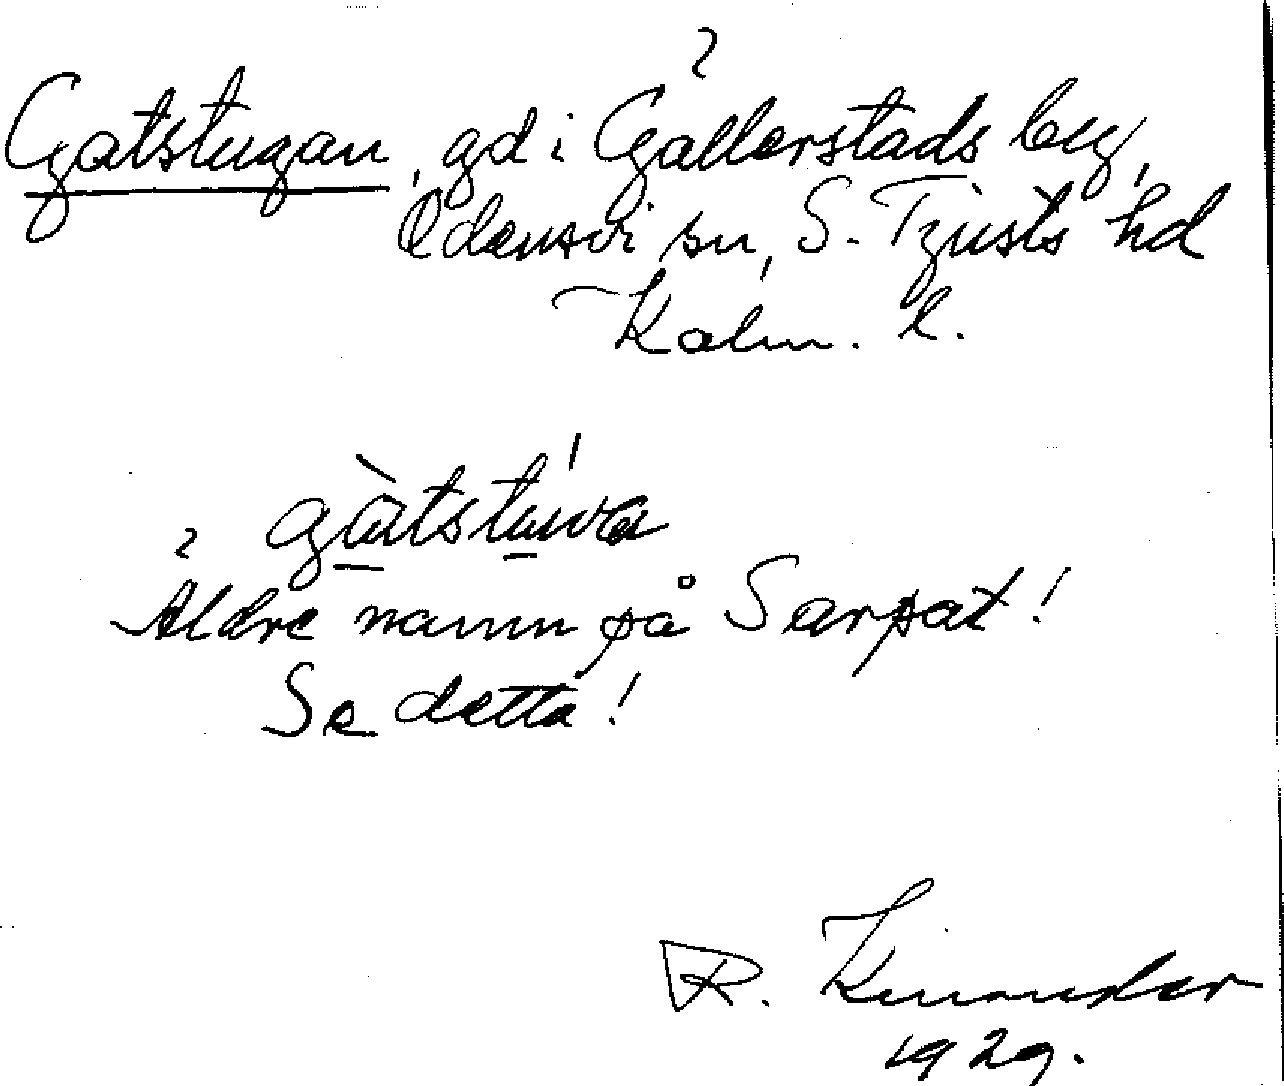 Gatstugan, gd i Gällerstads by,
Odensvi sn, S. Tjusts hd
Kalm. l.
gàtstúva
Äldre namn på Sarpat!
Se detta!
R. Kinander
1929.